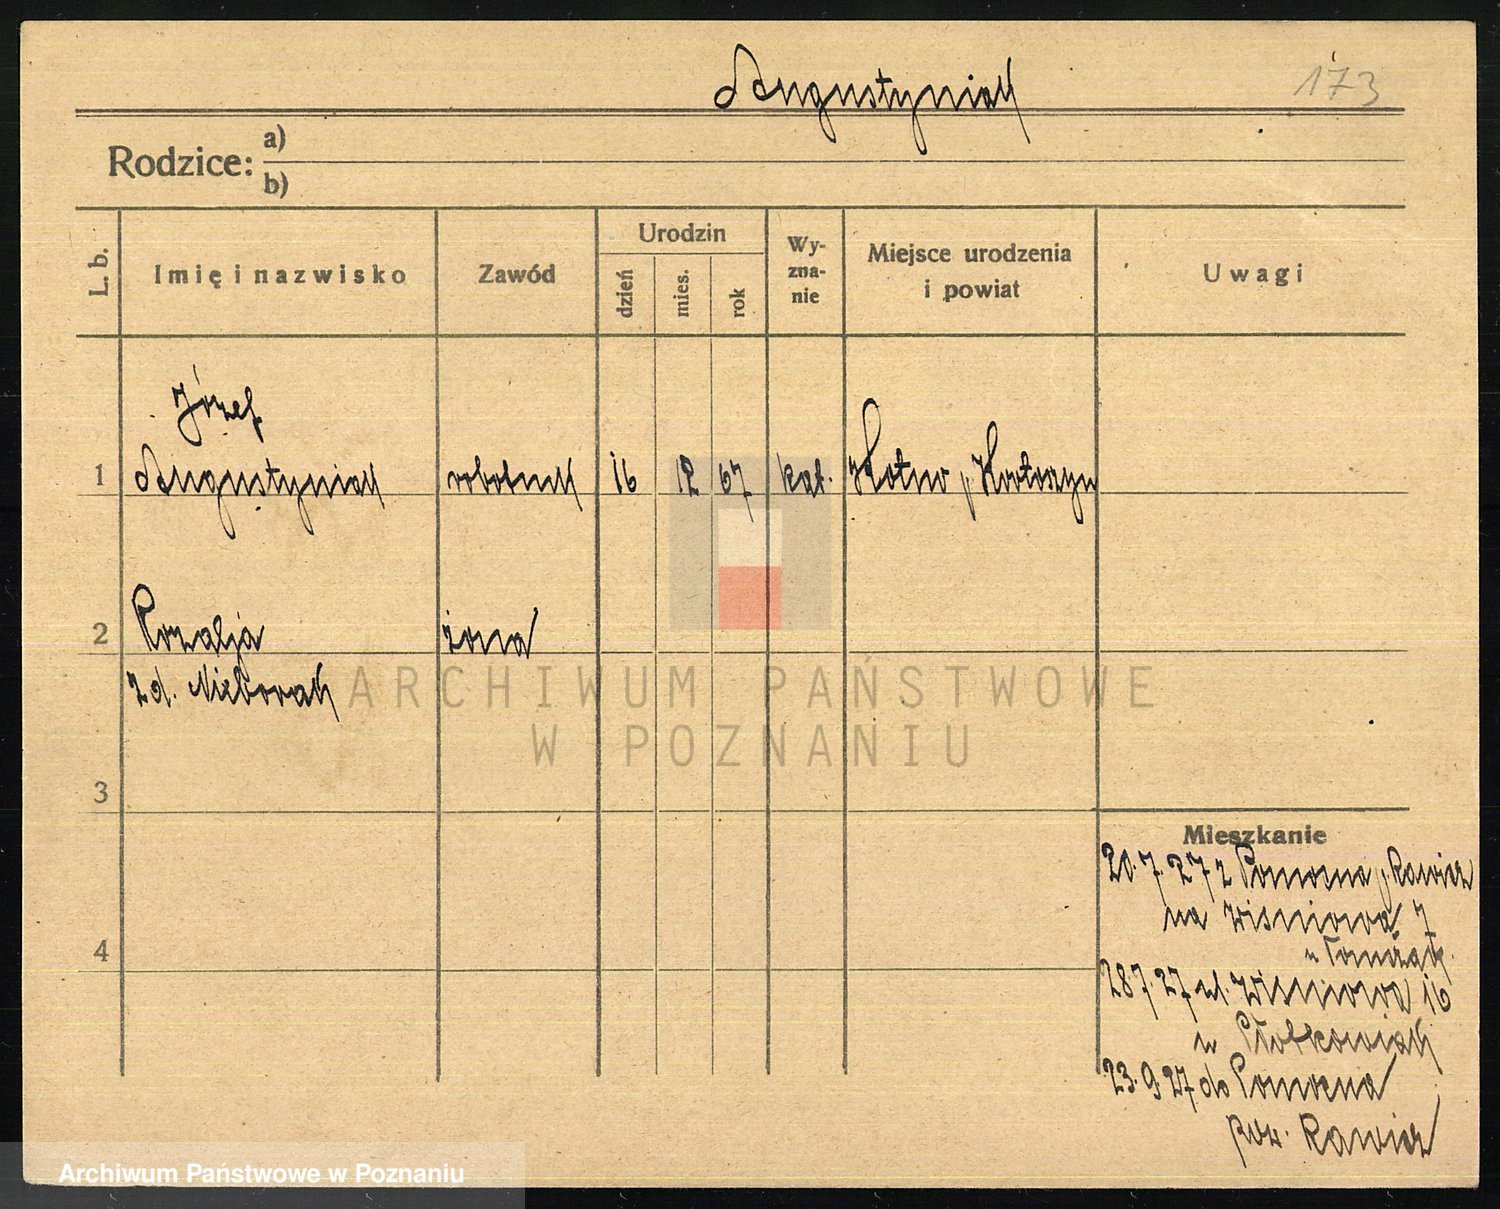 Augustyniak
173
Rodzice: a)
b)
L. b.
Imię i nazwisko
Zawód
Urodzin
dzień
mies.
rok
Wy-
zna-
nie
Miejsce urodzenia
i powiat
Uwagi
Józef
1 Augustyniak robotnik 16 12 67 kat.
2 Rozalja żona
z d. Nieborak
ARCHIWUM PAŃSTWOWE
W POZNANIU
3
Mieszkanie
20.7.27 z Pomocna p. Rawicz
na Wiśniowa 7
4
28.7.27 ul. Wiśniowa 16
23.9.27 do Pomocna
pow. Rawicz
Archiwum Państwowe w Poznaniu